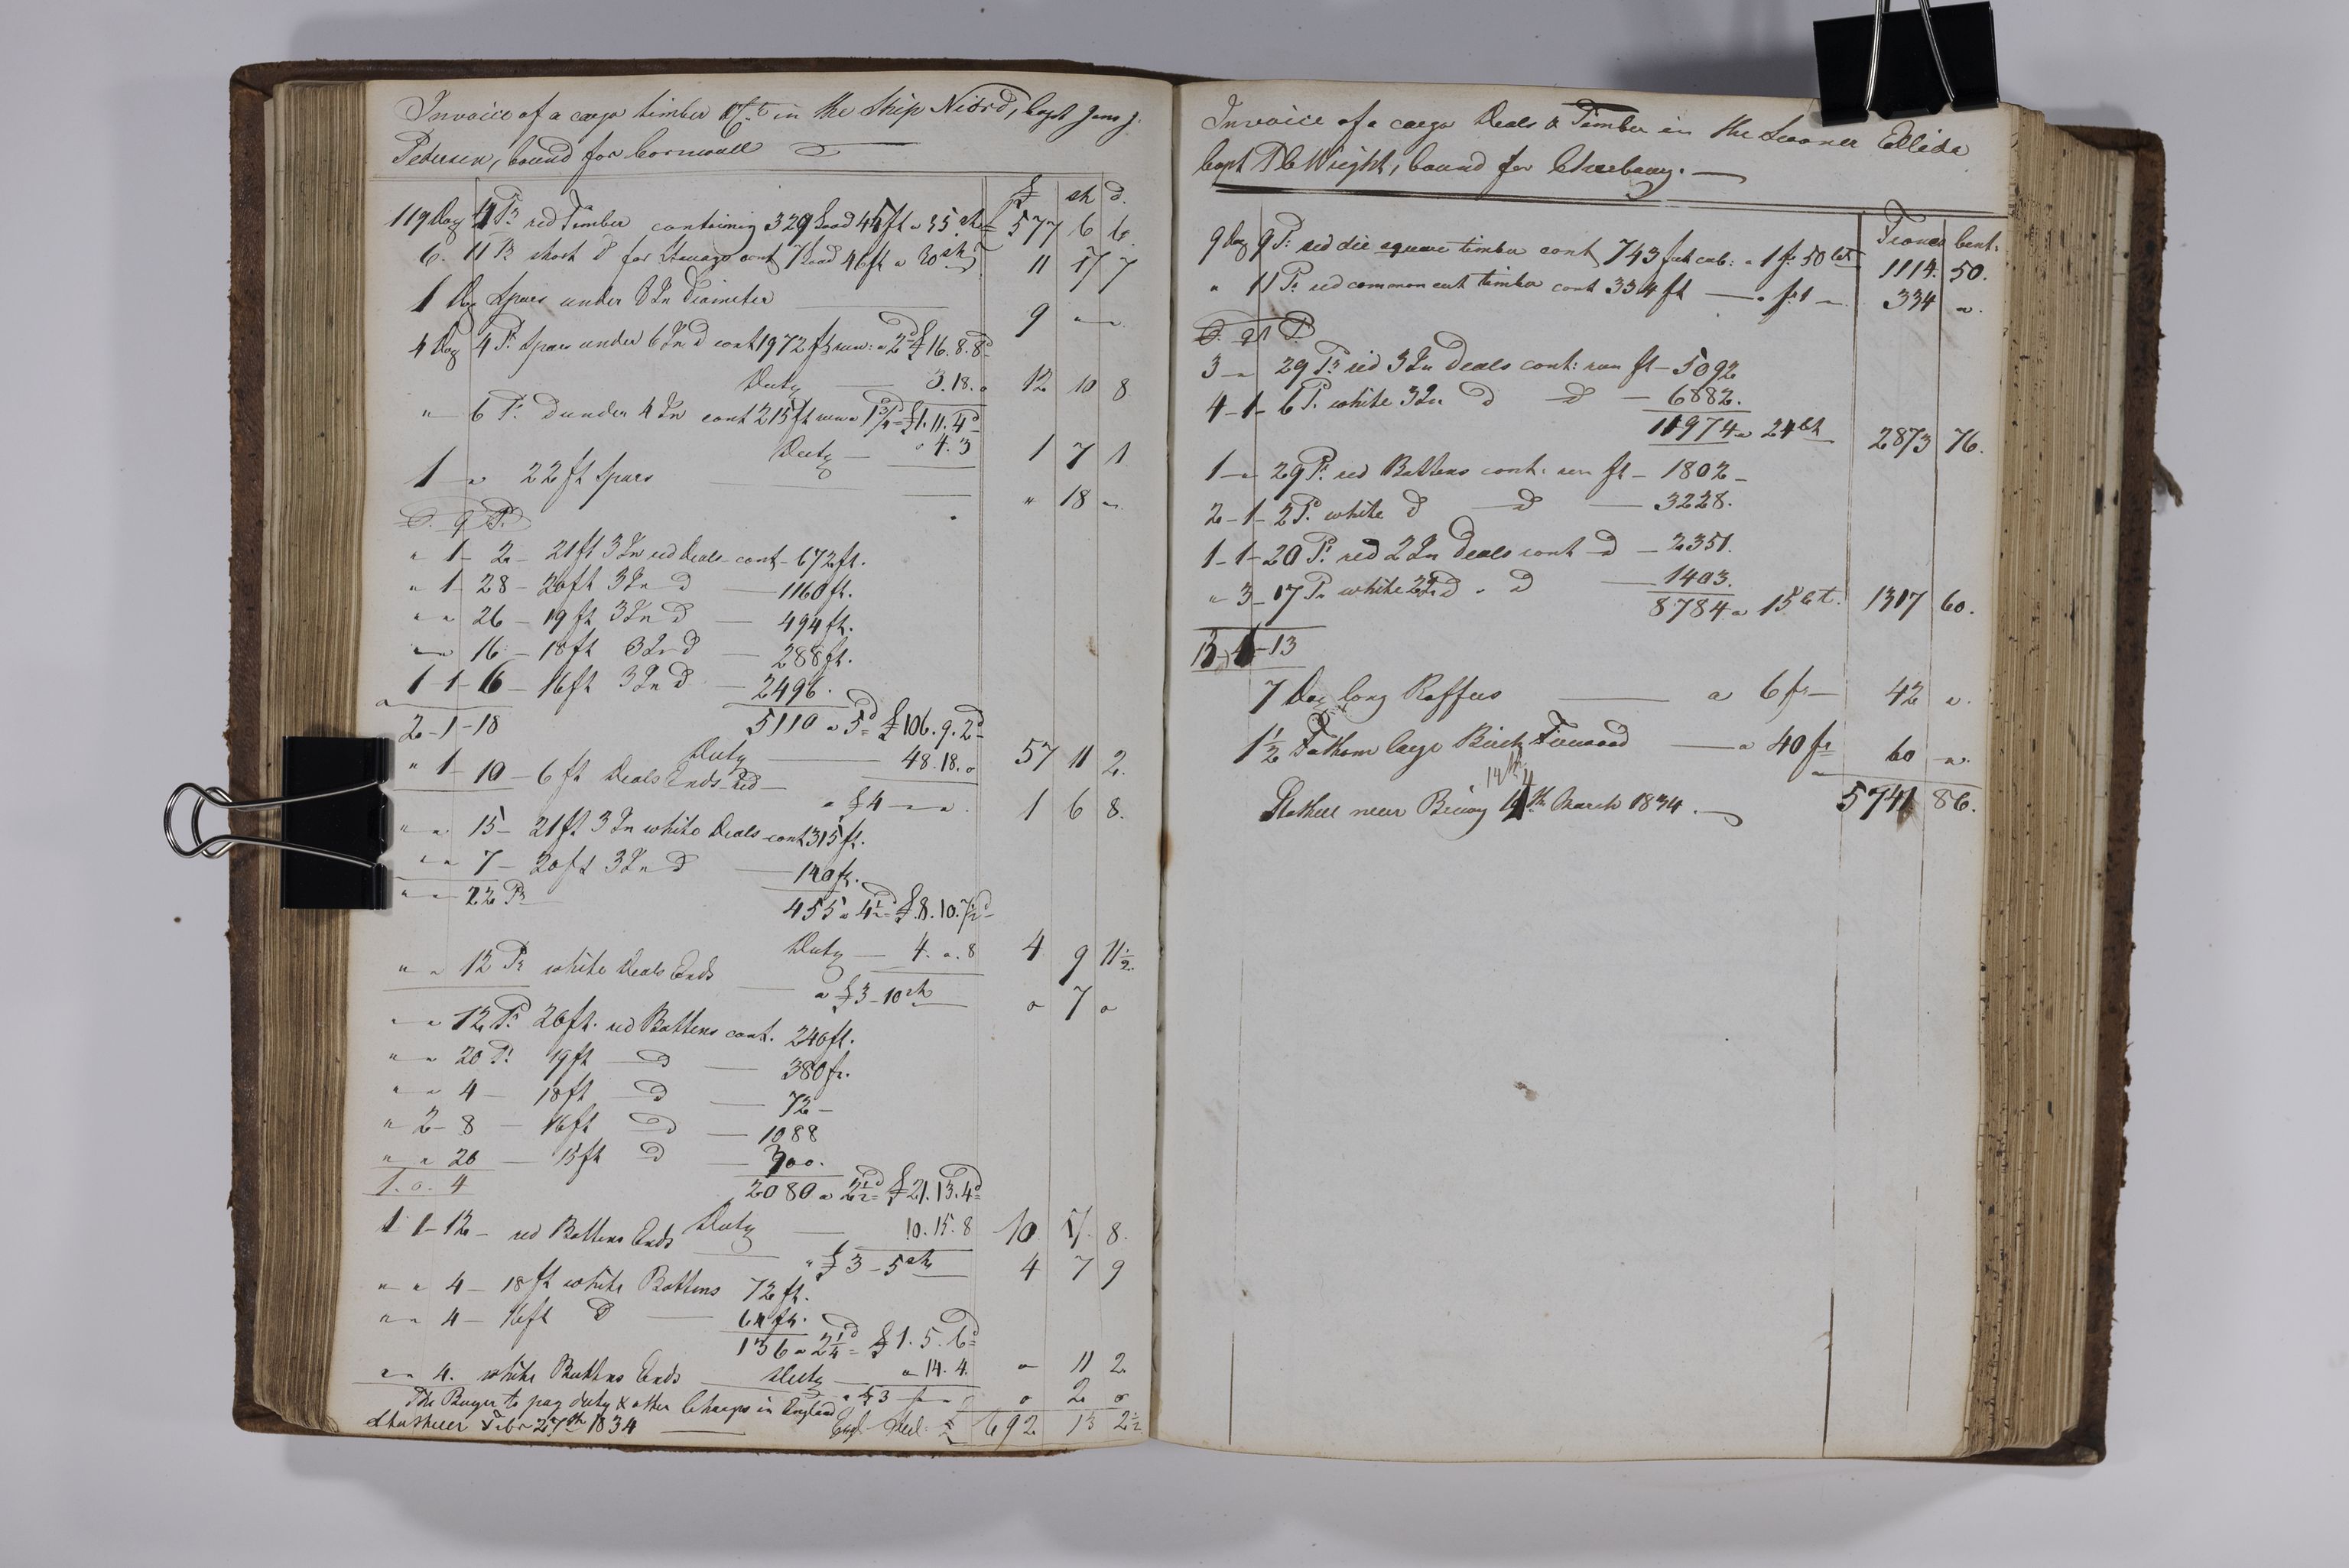 Invoice of a cargo timber in the Ship Niord, Capt Jens J.
Pedersen, bound for Cornwall
£ sh d.
119 Doz 4 Ps red Timber containing 329 Load 44 ft a 35 sh 577 6 6.
6. 11 Ps short d for Stowage cont 7 Load 46 ft a 30 sh 11 17 7
1 Doz Spars under 8 In Diameter 9 " "
4 Doz 4 Ps Spars under 6 In d cont 1972 ft run: a 2d £ 16.8.8d
Duty 3.18. " 12 10 8
" 6 Ps d under 4 In cont 215 ft run a 1 3/4d £ 1.11.4d
Duty " 4.3 1 7 1
1 " 22 ft Spars " 18 "
" 1 - 2 - 21 ft 3 In red Deals cont - 672 ft.
" 1 - 28 - 20 ft 3 In d 1160 ft.
" " 26 - 19 ft 3 In d 494 ft.
" " 16 - 18 ft 3 In d 288 ft.
1 - 1 - 6 - 16 ft 3 In d 2496.
2 - 1 - 18 5110 a 5d £ 106.9.2d
Duty 48.18. " 57 11 2.
" 1 - 10 - 6 ft Deals Ends red a £ 4 " " 1 6 8.
" " 15 - 21 ft 3 In white Deals cont 315 ft.
" " 7 - 20 ft 3 In d 140 ft.
" " 22 Ps 455 a 4 1/2d £ 8.10.7 1/2d
Duty 4. ". 8 4 9 11 1/2.
" " 12 Ps white Deals Ends a £ 3 - 10 sh " 7 "
" " 12 Ps 20 ft. red Battens cont. 240 ft.
" " 20 Ps 19 ft d 380 ft.
" " 4 - 18 ft d 72 -
" 2 - 8 - 16 ft d 1088
" " 20 - 15 ft d 300.
1. 0. 4 2080 a 2 1/2d £ 21.13.4d
Duty 10.15.8 10 17 8.
1 1 - 12 - red Battens Ends a £ 3 - 5 sh 4 7 9
" " 4 - 18 ft white Battens 72 ft.
" " 4 - 16 ft d 64 ft.
136 a 2 1/4d £ 1.5.6d
Duty " 14.4. " 11 2
" " 4. white Battens Ends a £ 3 " 2 "
The Buyer to pay duty & other Charges in England
Febr 27th 1834 Engl. Sterl: £ 692 13 2 1/2
Invoice of a cargo Deals & Timber in the Scooner Ellida
Capt Wright, bound for
Francs Cent.
9 Doz 9 Ps red die square timber cont 743 feet cub: a 1 fr 50 ct 1114. 50.
" 11 Ps red common cut timber cont 334 ft a fr 1 " 334 ".
3 - " 29 Ps red 3 In Deals cont: run ft - 5092
4 - 1 - 6 Ps white 3 In d d 6882.
11974 a 24 ct 2873 76.
1 - " 29 Ps red Battens cont: run ft - 1802 -
2 - 1 - 2 Ps white d d 3228.
1 - 1 - 20 Ps red 2 In Deals cont d - 2351.
" 3 - 17 Ps white 2 In d " d 1403.
8784 a 15 ct. 1317 60.
7 Doz long Raffers a 6 fr 42 ".
1 1/2 Fathom large Birch Firewood a 40 fr 60 ".
14th
near March 1834. 5741 86.